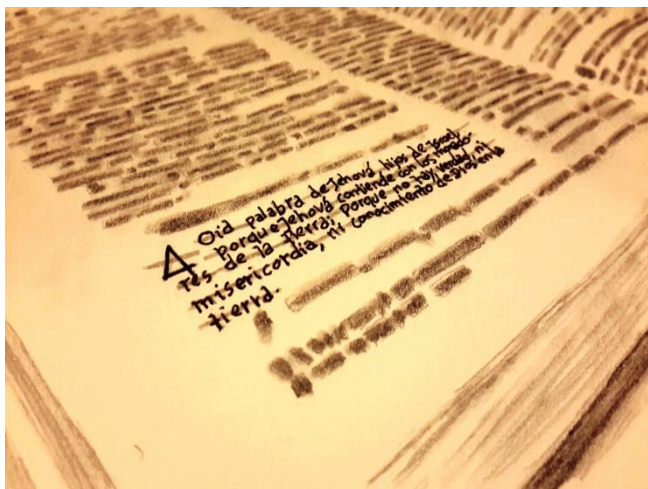 4 Oíd palabra de Jehová, hijos de Israel,
porque Jehová contiende con los morado-
res de la tierra; porque no hay verdad, ni
misericordia, ni conocimiento de Dios en la
tierra.